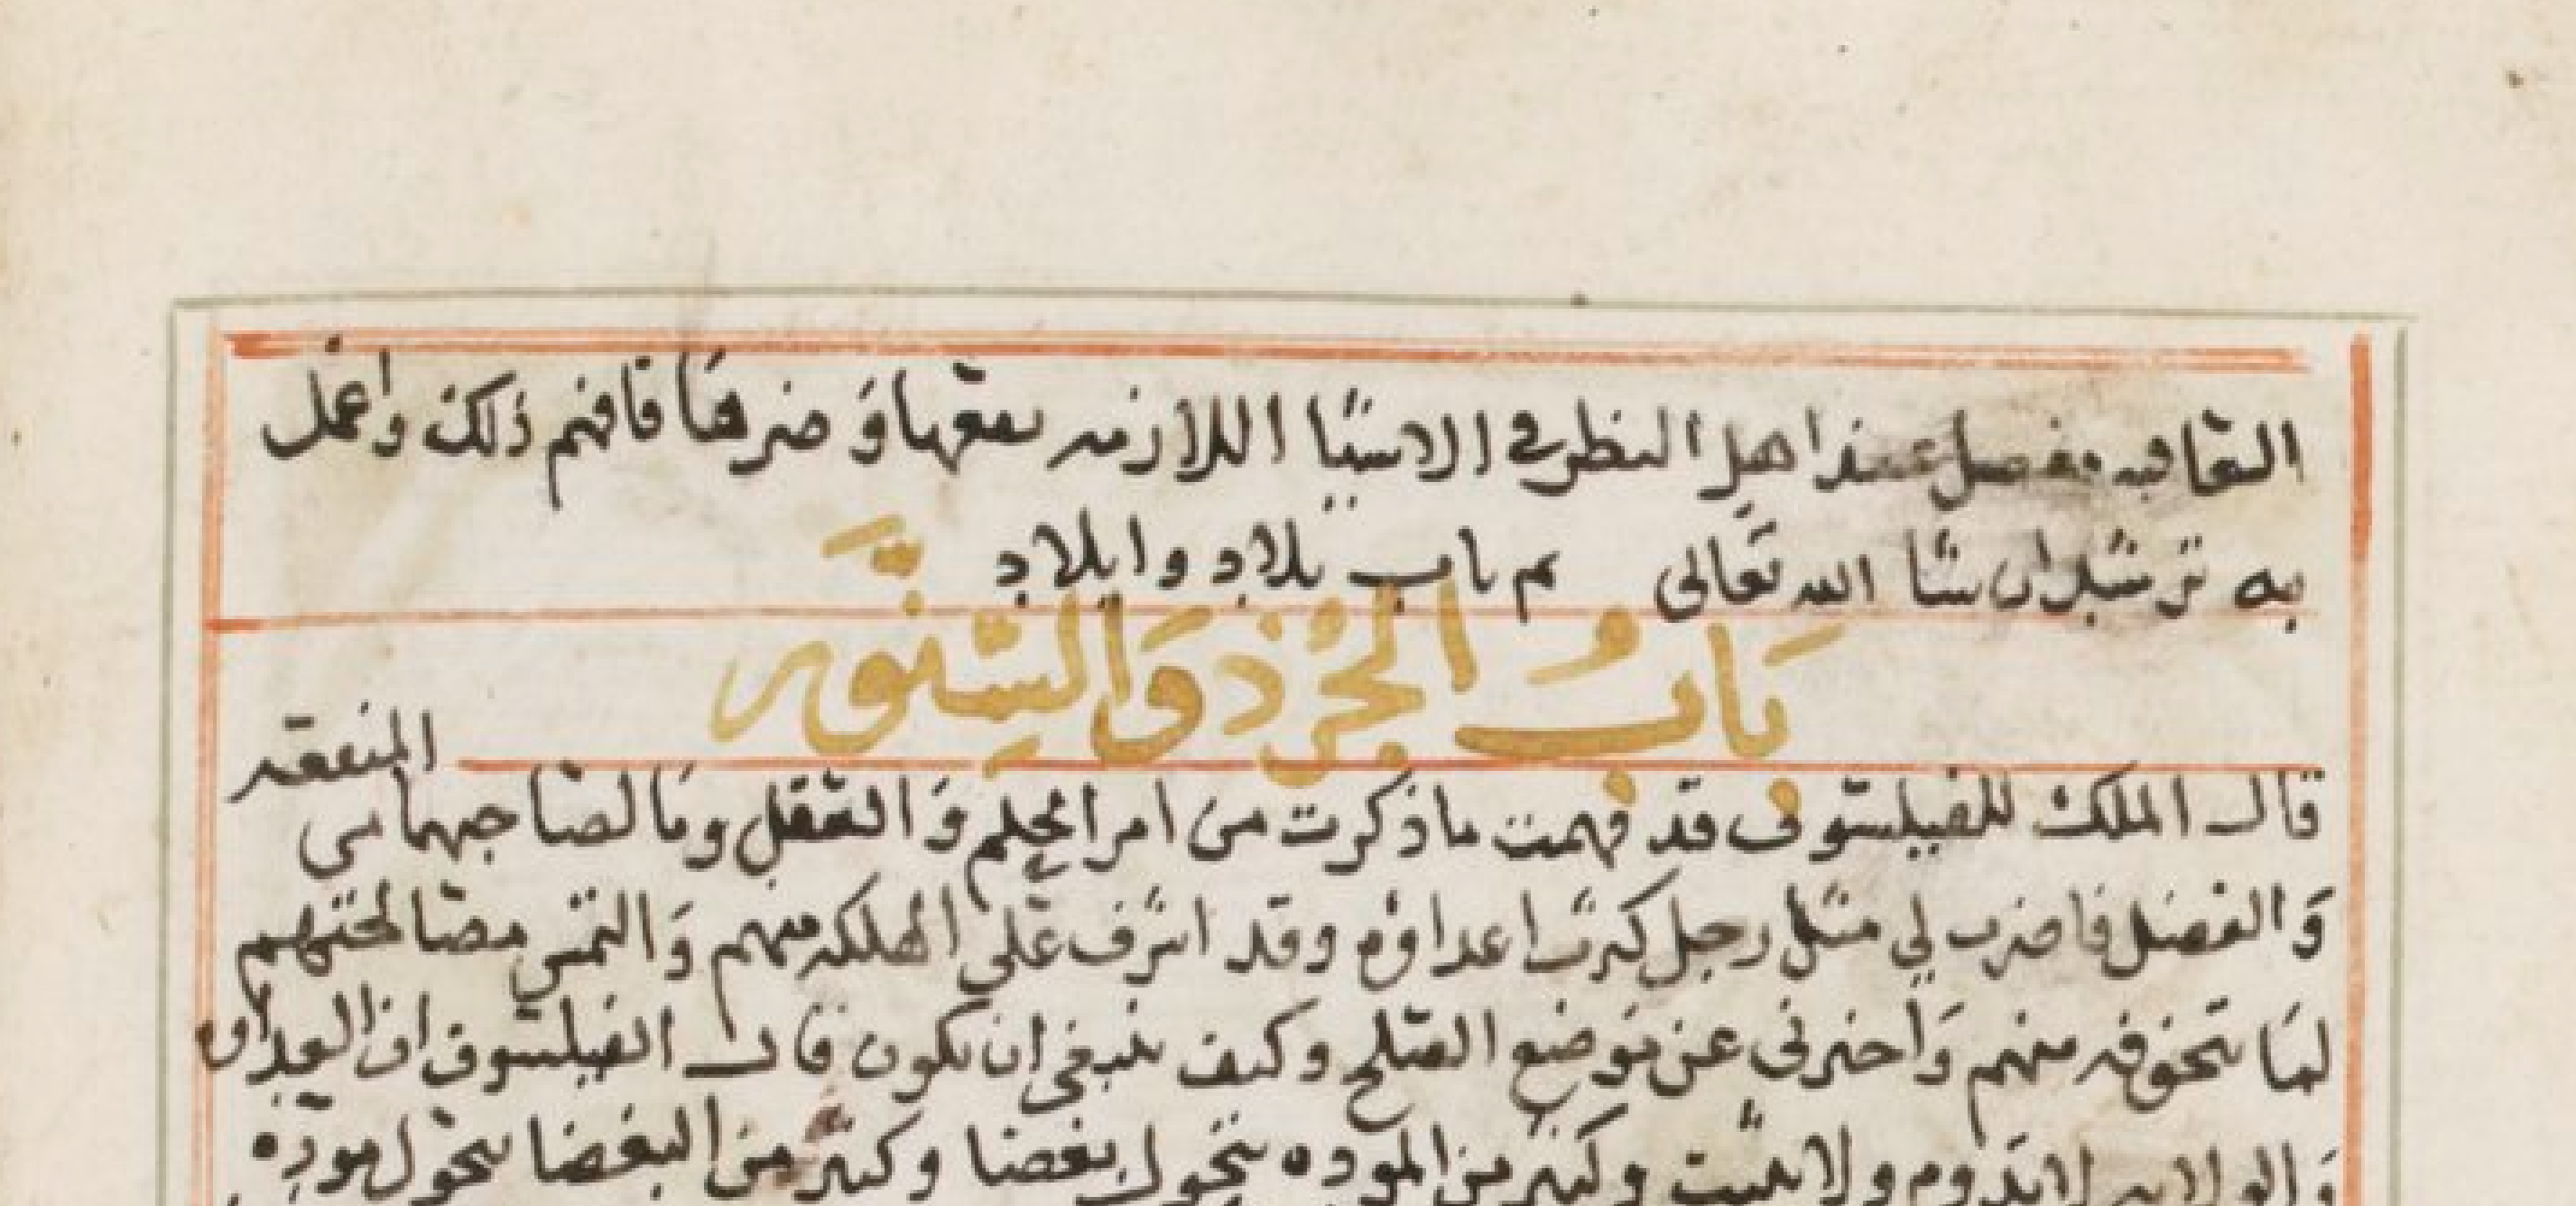 العاقبه عند اهل النظر في الاشيا اللازمه نفعها وَضرها فافهم ذلك واعمل
به ترشد ان شا الله تعالى تم باب بلاد وايلاد
بَابُ الجُرَذ وَالسِّنَّور
المنفعه
قال الملك للفيلسوف قد فهمت ما ذكرت من امر الحلم وَالعقل وما لصاحبهما من
وَالفضل فاضرب لي مثل رجل كثرت اعداؤه وقد اشرف على الهلكه منهم وَالتمس مصالحتهم
لما تخوفه منهم وَاخبرني عن موَضع الصلح وكيف ينبغي ان يكون قال الفيلسوف ان العداوه
وَالولايه لا تدوم ولا تثبت وكثير من الموده يتحول بغضا وكثير من البغضا يتحول موده